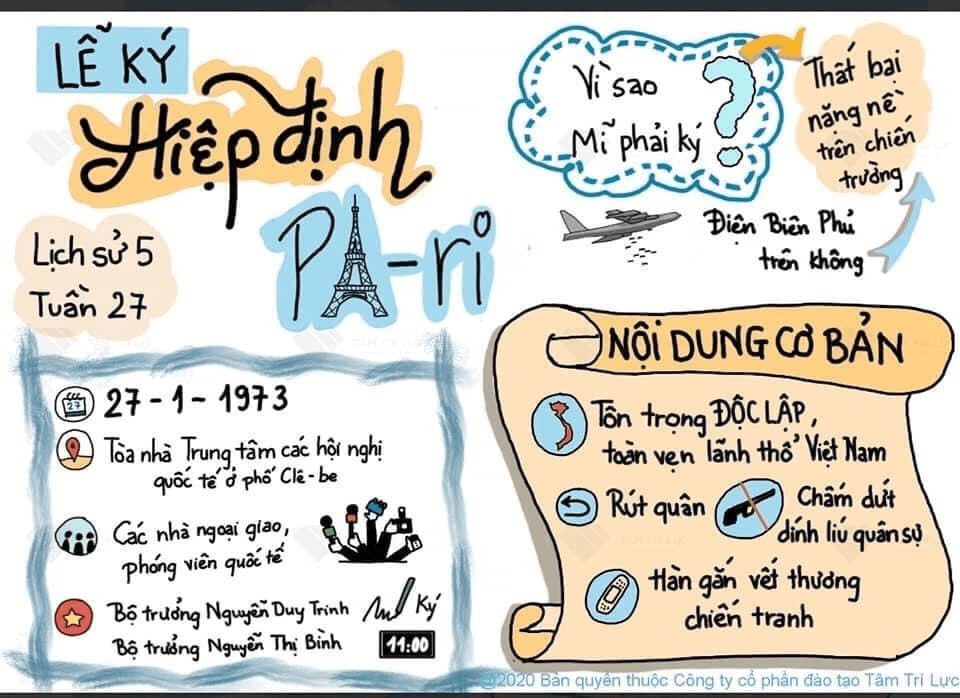 LỄ KÝ
Hiệp định
PA-ri
Lịch sử 5
Tuần 27
Vì sao
Mĩ phải ký
?
Thất bại
nặng nề
trên chiến
trường
Điện Biên Phủ
trên không
27
27-1-1973
Tòa nhà Trung tâm các hội nghị
quốc tế ở phố Clê-be
Các nhà ngoại giao,
phóng viên quốc tế
Bộ trưởng Nguyễn Duy Trinh
Ký
Bộ trưởng Nguyễn Thị Bình
11:00
NỘI DUNG CƠ BẢN
Tôn trọng ĐỘC LẬP,
toàn vẹn lãnh thổ Việt Nam
Rút quân
Chấm dứt
dính líu quân sự
Hàn gắn vết thương
chiến tranh
©2020 Bản quyền thuộc Công ty cổ phần đào tạo Tâm Trí Lực